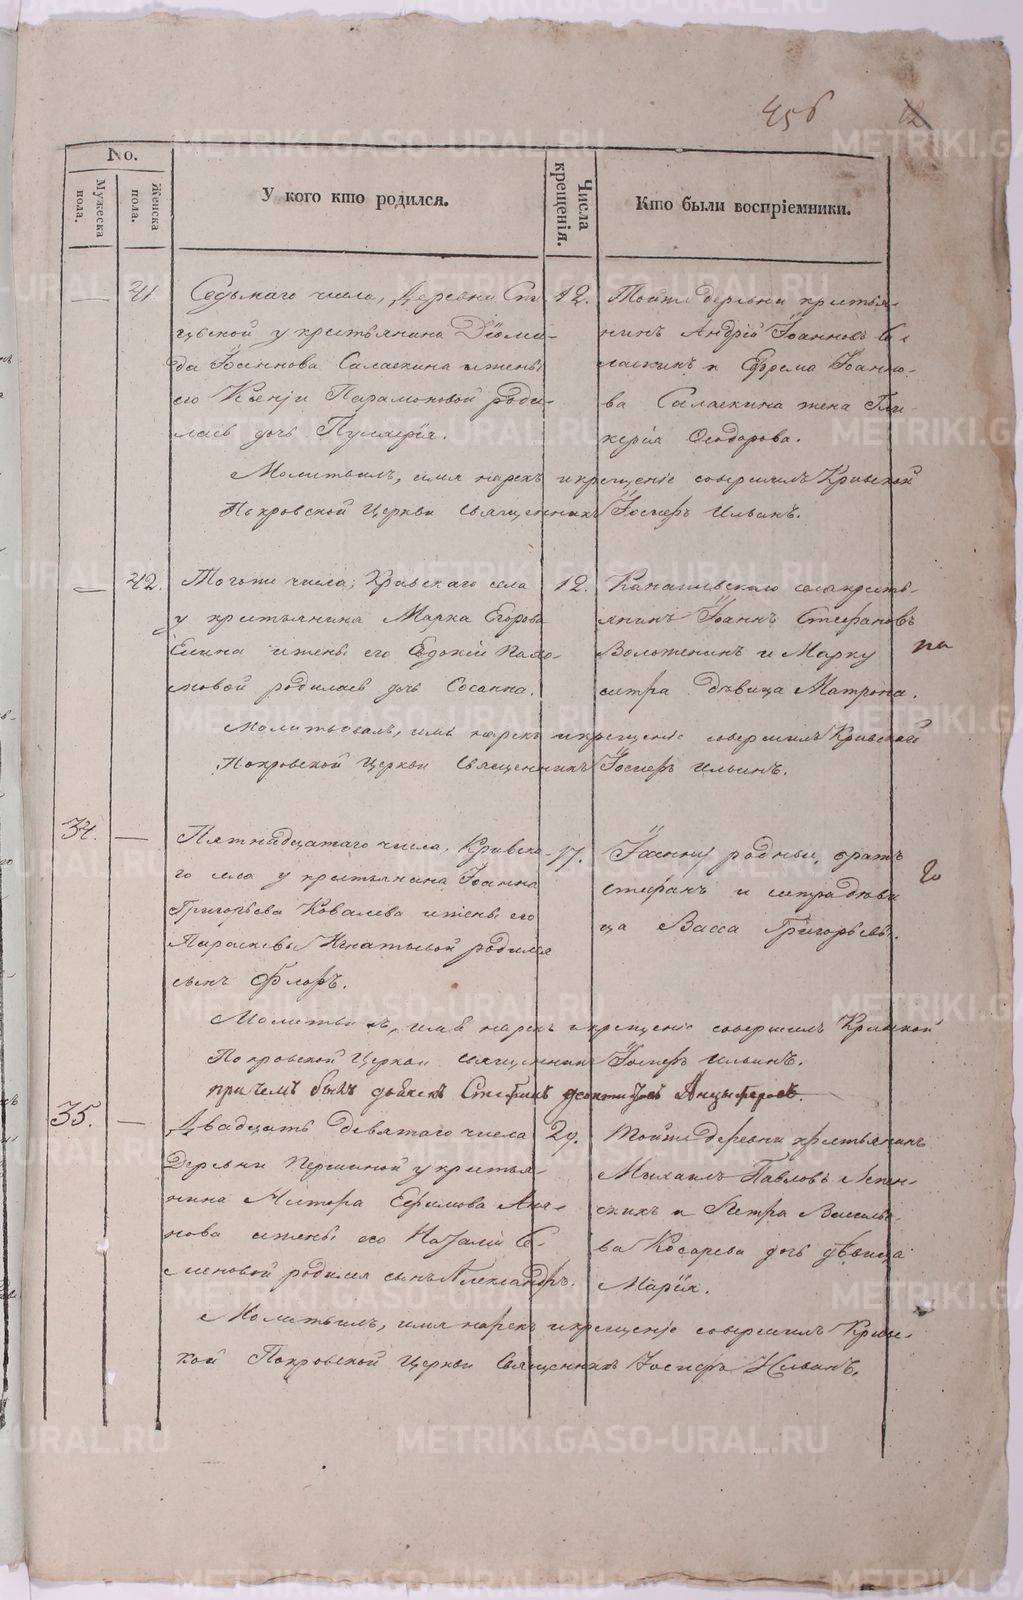 456
12
No.
Мужеска пола.
Женска пола.
У кого кто родился.
Числа крещенія.
Кто были воспріемники.
41. Седьмаго числа, Деревни
у крестьянина Діоми-
да Іоаннова Саласкина и жены
его Ксеніи Парамоновой роди-
лась дочь Пулхерія.
12.
Тойже деревни крестья-
нинъ Андрей Іоанновъ Са-
ласкинъ и Ефрема Іоанно-
ва Саласкина жена Гли-
керія Ѳеодорова.
Молитвилъ, имя нарекъ и крещеніе совершилъ Кривской
Покровской Церкви Священникъ Іосифъ Ильинъ.
42. Тогоже числа, Кривскаго села
у крестьянина Марка Егорова
Елина и жены его Евдокіи
родилась дочь Сосанна.
12.
стефановъ
и Марку
сестра дѣвица Матрона.
на
Молитвовалъ, имя нарекъ и крещеніе совершилъ Кривской
Покровской Церкви Священникъ Іосифъ Ильинъ.
34. Пятнадцатаго числа, Кривска-
го села у крестьянина Іоанна
Григорьева Ковалева и жены его
Параскевы Игнатьевой родился
сынъ Флоръ.
17.
Іоанну родные, братъ
Стефанъ и сестра дѣви
ца Васса Григорьевы.
го
Молитвилъ, имя нарекъ и крещеніе совершилъ Кривской
Покровской Церкви священникъ Іосифъ Ильинъ.
при чемъ былъ дьячекъ
35. Двадцать девятаго числа
Деревни Першиной у крестья-
нина
и жены его Наталіи Се-
меновой родился сынъ Александръ.
29.
Тойже деревни крестьянинъ
Михаилъ Павловъ Лепин-
скихъ и Петра Василье-
ва Косарева дочь дѣвица
Марія.
Молитвилъ, имя нарекъ и крещеніе совершилъ Кривс-
кой Покровской Церкви Священникъ Іосифъ Ильинъ.
METRIKI.GASO-URAL.RU